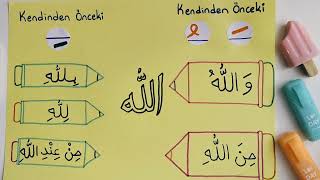 Kendinden Önceki
Kendinden Önceki
بِللهِ
لِلّٰهِ
مِنْ عِنْدِ اللّٰهِ
اللّٰه
وَ اللّٰهُ
مِنَ اللّٰهِ